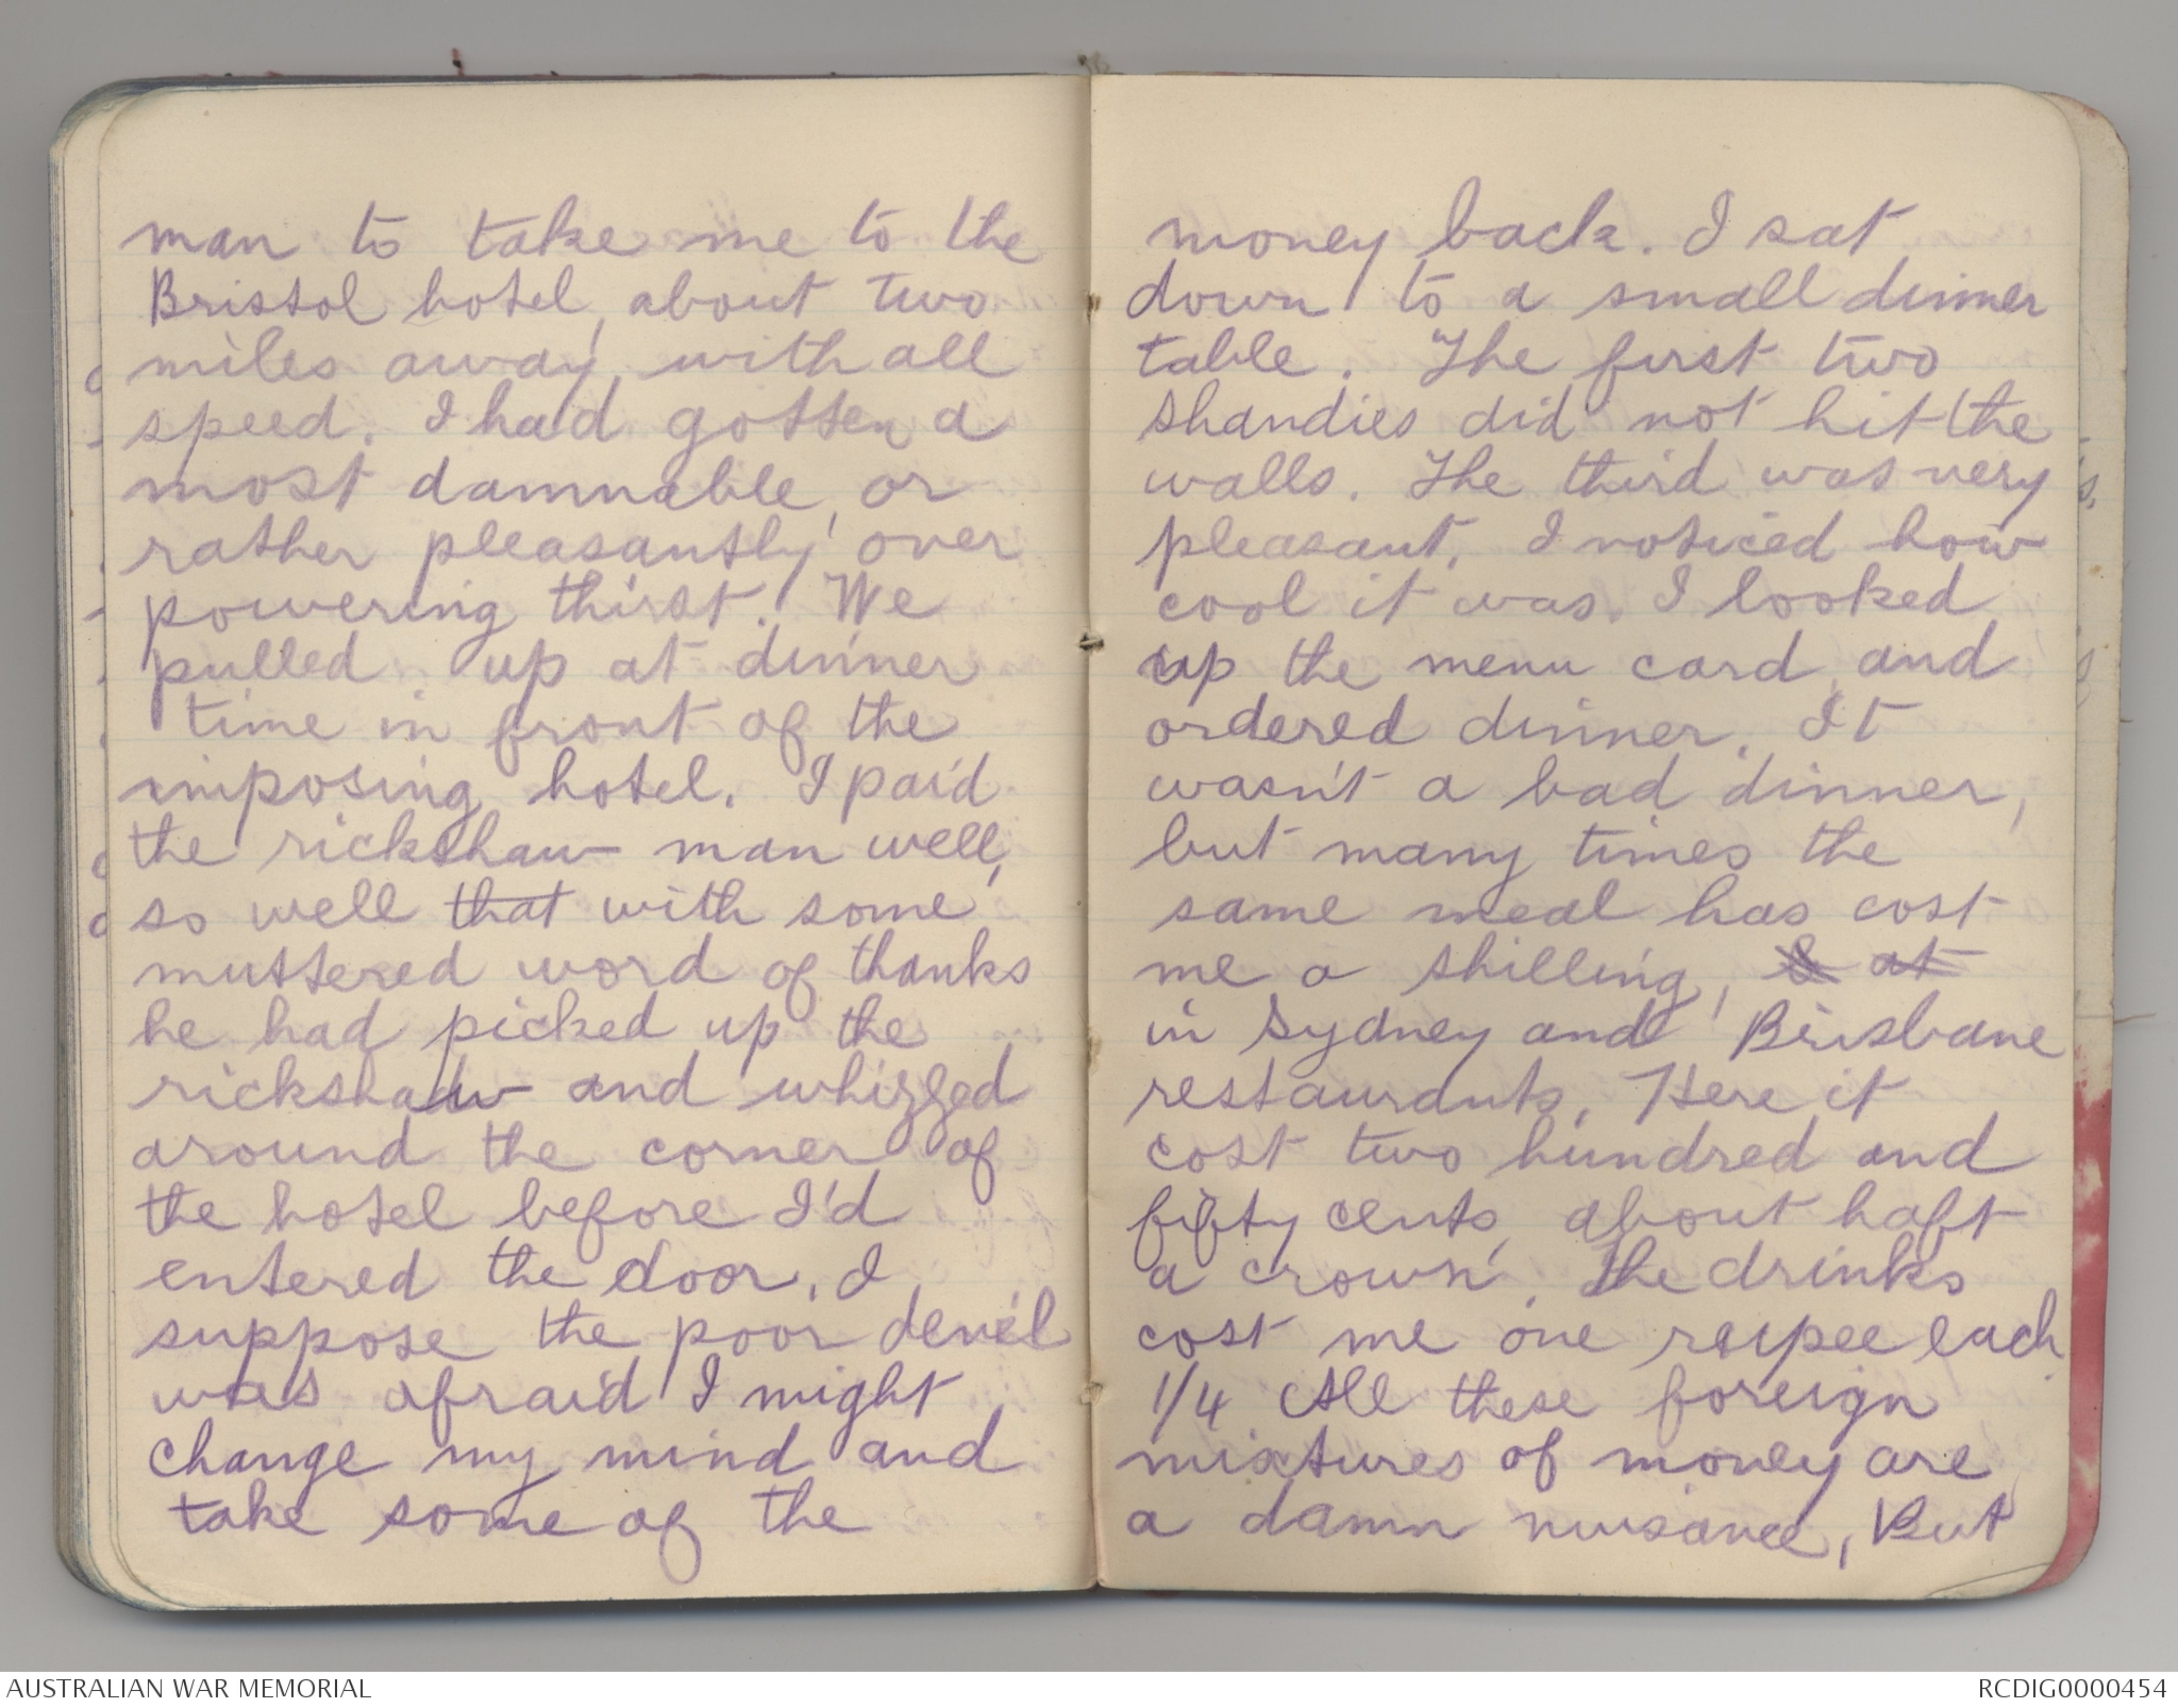 man to take me to the
Bristol hotel, about two
miles away, with all
speed. I had gotten a
most damnable, or
rather pleasantly over
powering thirst. We
pulled up at dinner
time in front of the
imposing hotel. I paid
the rickshaw man well,
so well that with some
muttered word of thanks
he had picked up the
rickshaw and whizzed
around the corner of
the hotel before I'd
entered the door. I
suppose the poor devil
was afraid I might
change my mind and
take some of the
money back. I sat
down to a small dinner
table. The first two
shandies did not hit the
walls. The third was very
pleasant. I noticed how
cool it was. I looked
up the menu card, and
ordered dinner. It
wasn't a bad dinner,
but many times the
same meal has cost
me a shilling, & at
in Sydney and Brisbane
restaurants. Here it
cost two hundred and
fifty cents, about haft
a crown. The drinks
cost me one rupee each
1/4 All these foreign
mixtures of money are
a damn nuisance, But
AUSTRALIAN WAR MEMORIAL
RCDIG0000454